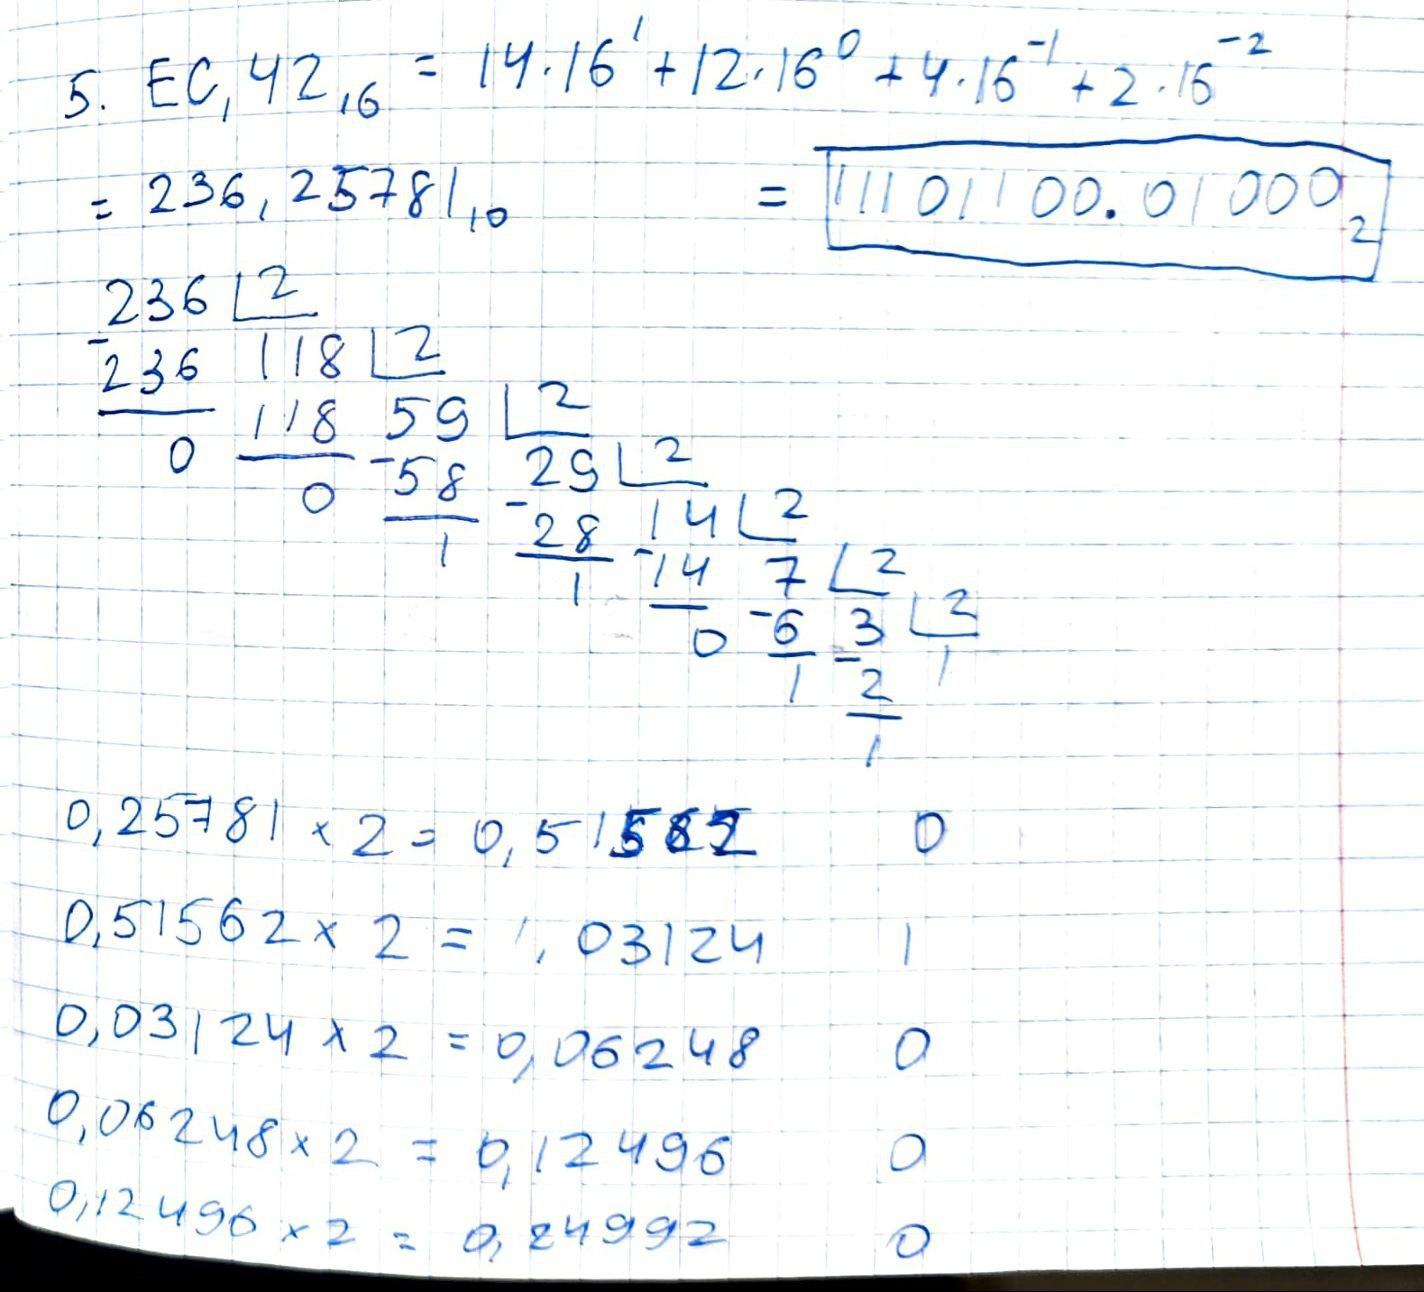 5. EC,42₁₆ = 14·16¹ + 12·16⁰ + 4·16⁻¹ + 2·16⁻²
= 236,25781₁₀ = 11101100.01000₂
236 2
-236 118 2
0 118 59 2
0 -58 29 2
1 -28 14 2
1 -14 7 2
0 -6 3 2
1 -2 1
1
0,25781 × 2 = 0,51562 0
0,51562 × 2 = 1,03124 1
0,03124 × 2 = 0,06248 0
0,06248 × 2 = 0,12496 0
0,12496 × 2 = 0,24992 0